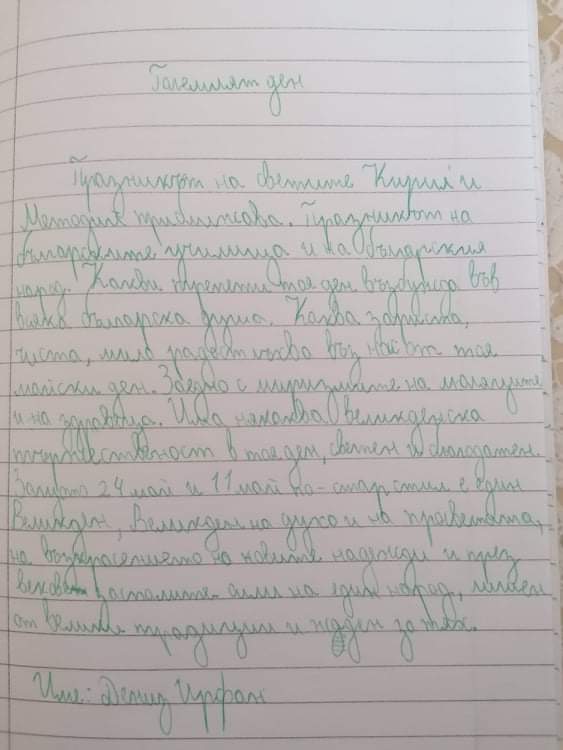 Големият ден
Празникът на светите Кирил и
Методия приближава. Празникът на
българските училища и на българския
народ. Какви трепети тоя ден възбужда във
всяка българска душа. Каква
чиста, мила радост тоя
майски ден. Заедно с миризмите на
и на здравеца. Има някаква великденска
тържественост в тоя ден, светен и благодатен.
Защото 24 май и 11 май по-стар стил е един
Великден, Великден на духа и на просветата,
на възкресението на новите надежди и през
вековете заспалите сили на един народ, лишен
от велики традиции и жаден за тях.
Име: Дениз Ирфан